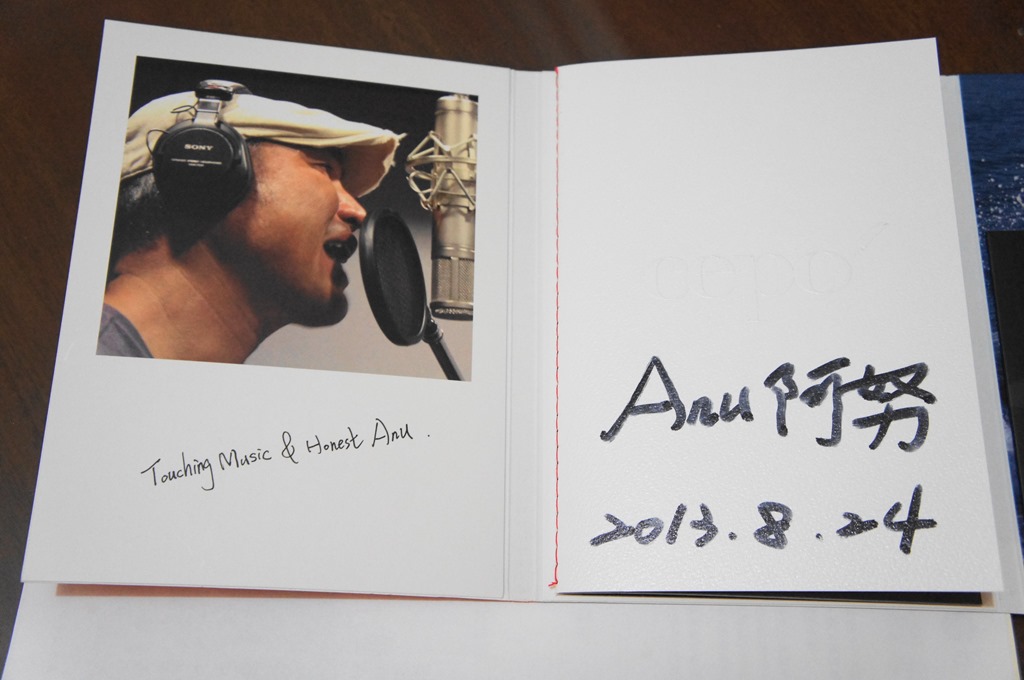 SONY
Touching Music & Honest Anu.
Anu阿努
2013.8.24